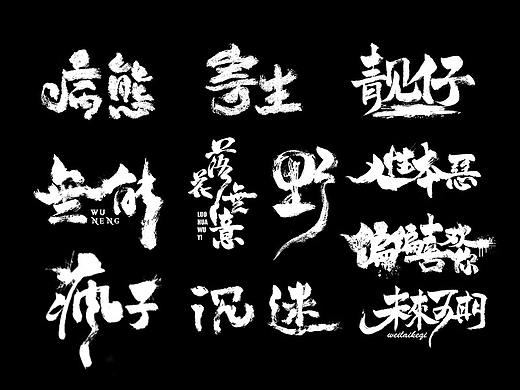 病熊
寄生
靓仔
無能
WU
NENG
落花無意
LUO
HUA
WU
YI
野
人性本惡
偏偏喜欢你
疯子
沉迷
未來可期
weilaikeqi